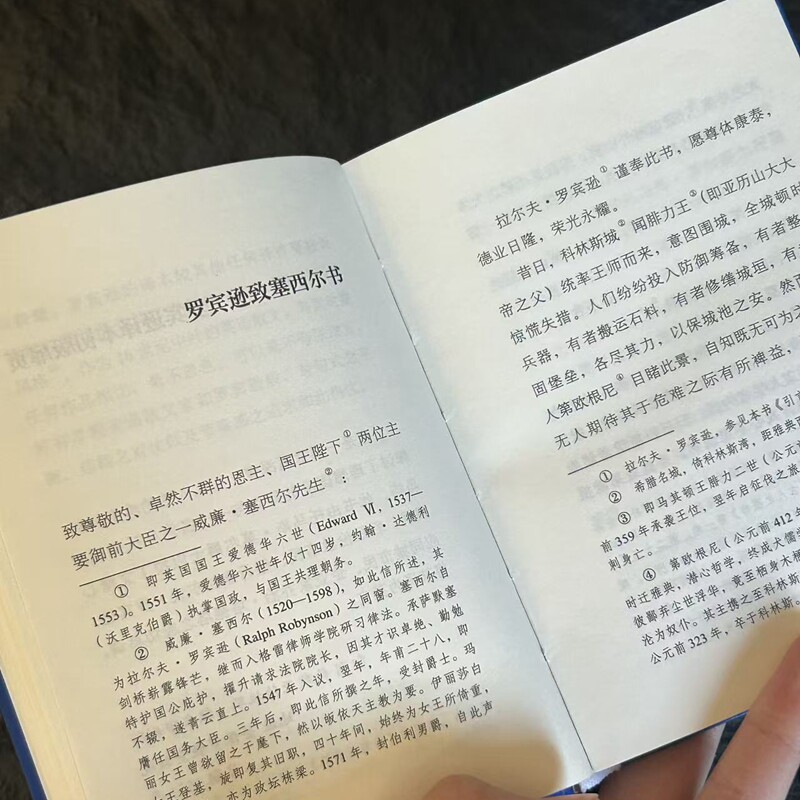 罗宾逊致塞西尔书
致尊敬的、卓然不群的恩主、国王陛下①两位主
要御前大臣之一威廉·塞西尔先生②：
① 即英国国王爱德华六世（Edward VI, 1537—
1553）。1551年，爱德华六世年仅十四岁，约翰·达德利
（沃里克伯爵）执掌国政，与国王共理朝务。
② 威廉·塞西尔（1520—1598），如此信所述，其
为拉尔夫·罗宾逊（Ralph Robynson）之同窗。塞西尔自
剑桥崭露锋芒，继而入格雷律师学院研习律法。承萨默塞
特护国公庇护，擢升请求法院院长，因其方识卓绝、勤勉
不辍，遂青云直上。1547年入议，翌年，年甫二十八，即
膺任国务大臣。三年后，即此信所撰之年，受封爵士。玛
丽女王曾欲留之于麾下，然以皈依天主教为要。伊丽莎白
女王登基，旋即复其旧职，四十年间，始终为女王所倚重，
亦为政坛栋梁。1571年，封伯利男爵，自此声
拉尔夫·罗宾逊①谨奉此书，愿尊体康泰，
德业日隆，荣光永耀。
昔日，科林斯城②闻腓力王③（即亚历山大大
帝之父）统率王师而来，意图围城，全城顿时
惊慌失措。人们纷纷投入防御筹备，有者整
兵器，有者搬运石料，有者修缮城垣，有者
固堡垒，各尽其力，以保城池之安。然而
人第欧根尼④目睹此景，自知既无可为之
无人期待其于危难之际有所裨益，
① 拉尔夫·罗宾逊，参见本书《引言
② 希腊名城，倚科林斯湾，距雅典西
③ 即马其顿王腓力二世（公元前
前359年承袭王位，翌年启征伐之旅
刺身亡。
④ 第欧根尼（公元前412年
时迁雅典，潜心哲学，终成犬儒学
彼鄙弃尘世浮华，竟至栖身木桶
沦为奴仆。其主携之至科林斯
公元前323年，卒于科林斯。